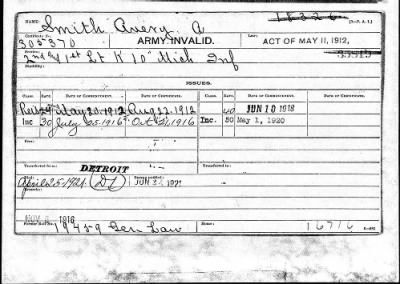 NAME: Smith Avery, A 18326 (3-A. I.)
303370 ARMY INVALID. Law: ACT OF MAY 11, 1912,
2nd & 1st Lt K 10" Mich Inf 33913
ISSUES.
CLASS. RATE. DATE OF COMMENCEMENT. DATE OF CERTIFICATE. CLASS. RATE. DATE OF COMMENCEMENT. DATE OF CERTIFICATE.
Reis 24 May 20, 1912 Aug 22, 1912 40 JUN 10 1918
Inc 30 July 25, 1916 Oct 1916 Inc. 50 May 1, 1920
Transferred from
DETROIT
April 25-1921. JUN 1921
NOV 1916
19459 Gen Law 16716